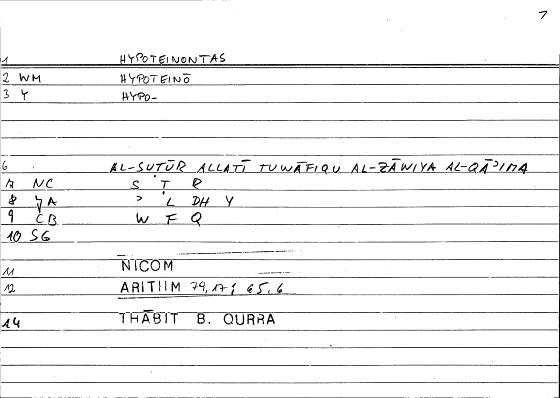 7
1 HYPOTEINONTAS
2 WM HYPOTEINŌ
3 Y HYPO-
6 AL-SUṬŪR ALLATĪ TUWĀFIQU AL-ZĀWIYA AL-QĀʾIMA
7 NC S Ṭ R
8 JA ʾ L DH Y
9 CB W F Q
10 SG
11 NICOM
12 ARITIIM 79,17; 65,6
14 THĀBIT B. QURRA